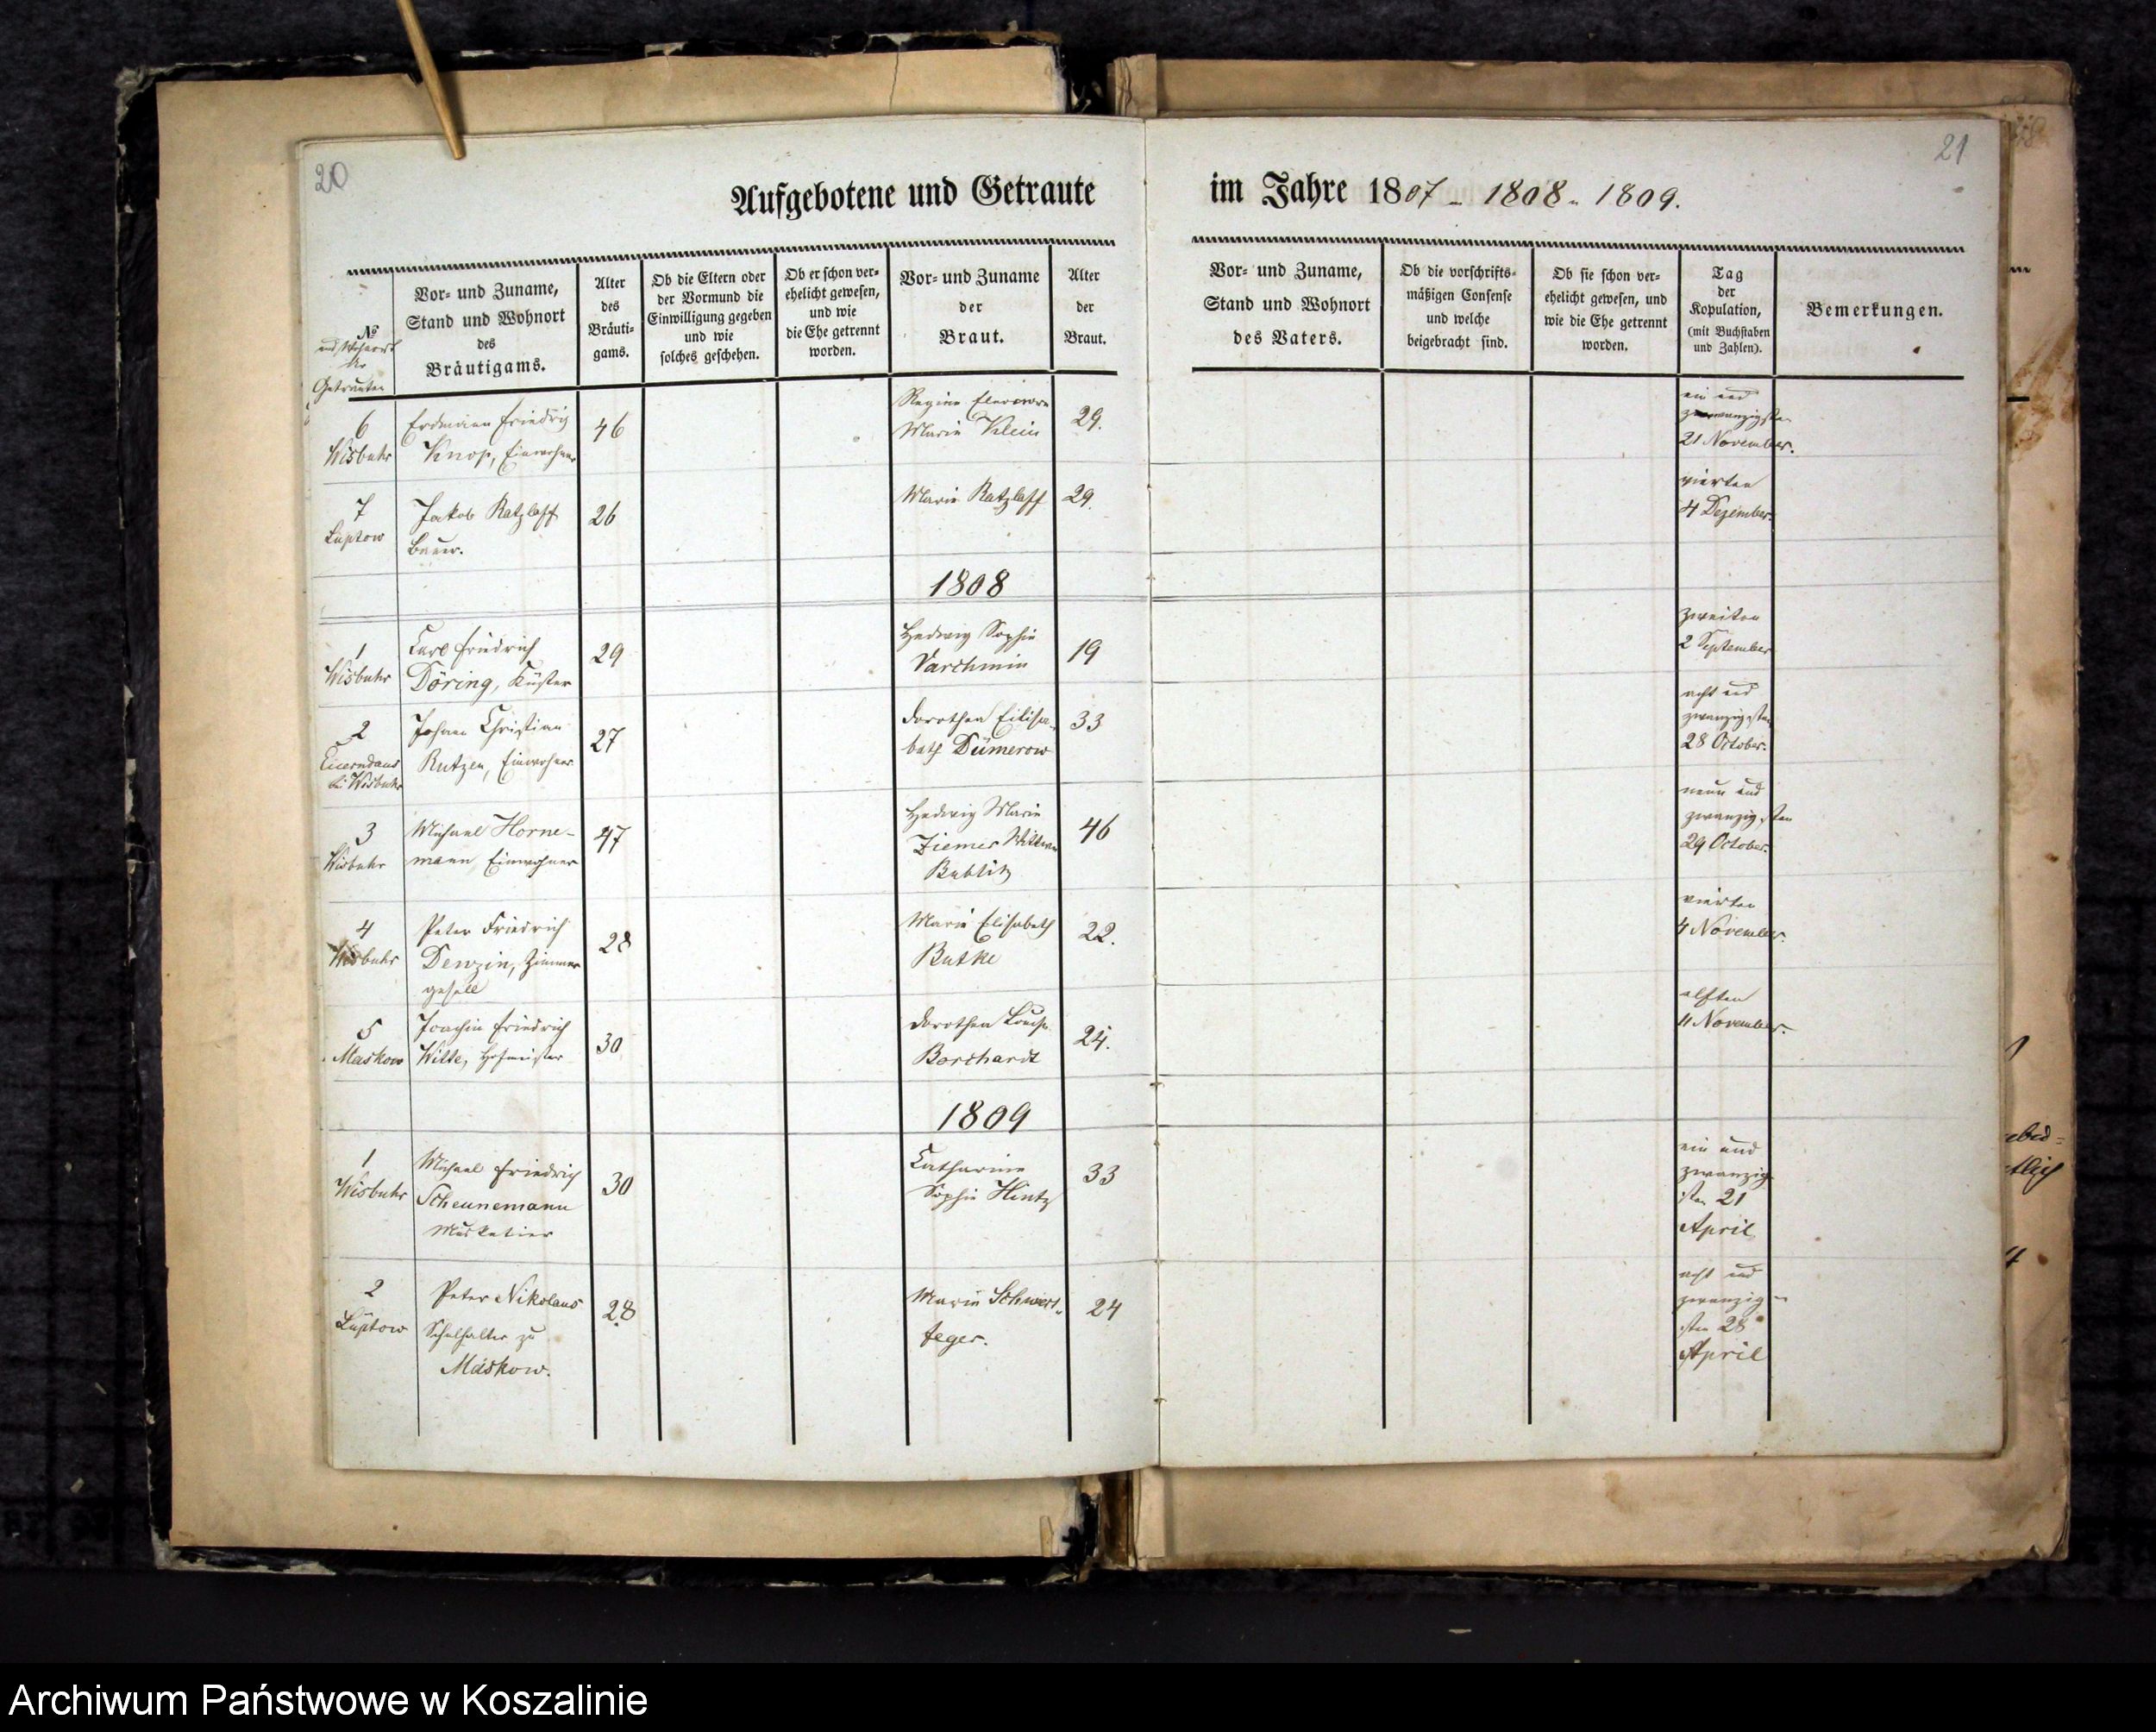 20
21
Aufgebotene und Getraute
im Jahre 1807 - 1808 - 1809.
№
und Wohnort
der
Getrauten
Vor- und Zuname,
Stand und Wohnort
des
Bräutigams.
Alter
des
Bräuti-
gams.
Ob die Eltern oder
der Vormund die
Einwilligung gegeben
und wie
solches geschehen.
Ob er schon ver-
ehelicht gewesen,
und wie
die Ehe getrennt
worden.
Vor- und Zuname
der
Braut.
Alter
der
Braut.
Vor- und Zuname,
Stand und Wohnort
des Vaters.
Ob die vorschrifts-
mäßigen Consense
und welche
beigebracht sind.
Ob sie schon ver-
ehelicht gewesen, und
wie die Ehe getrennt
worden.
Tag
der
Kopulation,
(mit Buchstaben
und Zahlen).
Bemerkungen.
6
Wisbuhr
Erdmann Friedrig
Knop, Einwohner
46
Regine Eleonore
Marie Klein
29.
ein und
zwanzigsten
21 November.
7
Lüptow
Jakob Ratzlaff
Bauer.
26
Marie Ratzlaff
29.
vierten
4 Dezember.
1808
1
Wisbuhr
Carl Friedrich
Döring, Küster
29
Hedwig Sophie
Varchmin
19
zweiten
2 September
2
bei Wisbuhr
Johann Christian
Rutzen, Einwohner
27
Dorothea Elisa-
beth Dümerow
33
acht und
zwanzigsten
28 October.
3
Wisbuhr
Michael Horne-
mann Einwohner
47
Hedwig Marie
Ziemer Wittwe
Bublitz
46
neun und
zwanzigsten
29 October.
4
Wisbuhr
Peter Friedrich
Denzin, Zimmer
gesell
28
Marie Elisabeth
Butke
22.
vierten
4 November.
5
Maskow
Joachim Friedrich
Witte, Hofmeister
30
Dorothea Louise
Borchardt
24.
elften
11 November.
1809
1
Wisbuhr
Michael Friedrich
Scheunemann
Musketier
30
Catharine
Sophie Hintz
33
ein und
zwanzig
sten 21
April
2
Lüptow
Peter Nikolaus
Schulhalter zu
Maskow.
28
Marie Schwert-
feger.
24
acht und
zwanzig-
sten 28
April
Archiwum Państwowe w Koszalinie